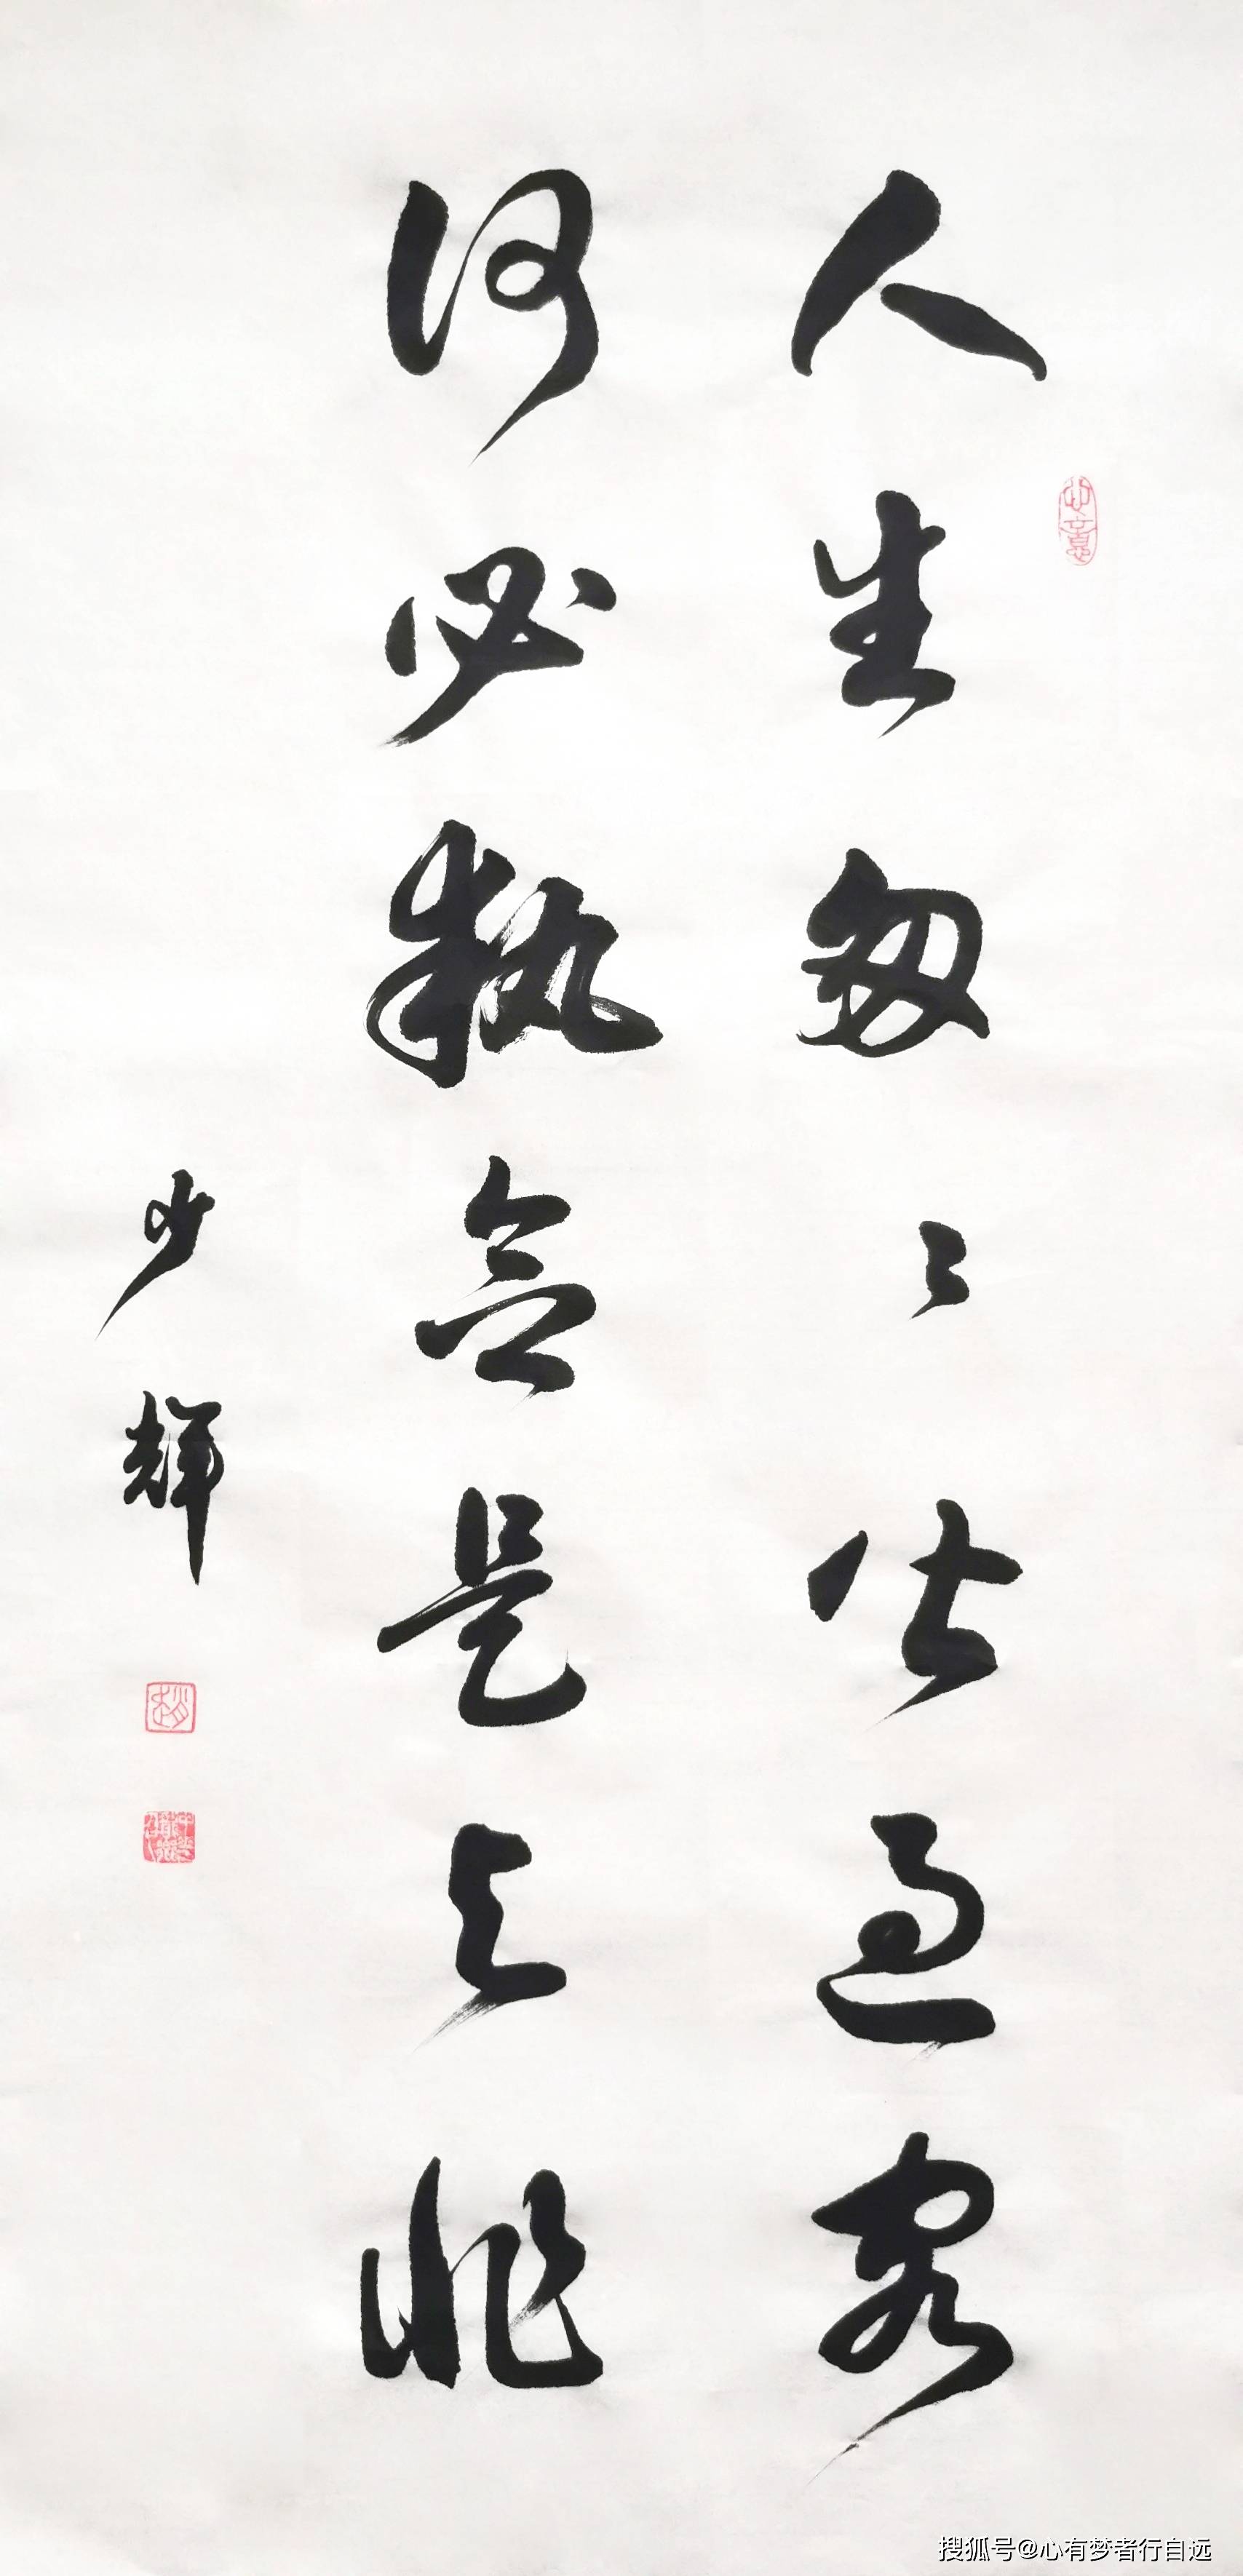 人生匆々皆過客
何必執念是与非
少輝
趙
搜狐号@心有梦者行自远